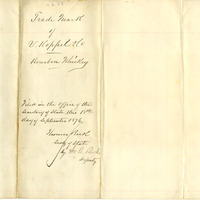 Trade Mark
of
V. Koppel & Co
Bourbon Whiskey
Filed in the Office of the
Secretary of State this 18th
day of September 1876
Secty of State
by
Deputy